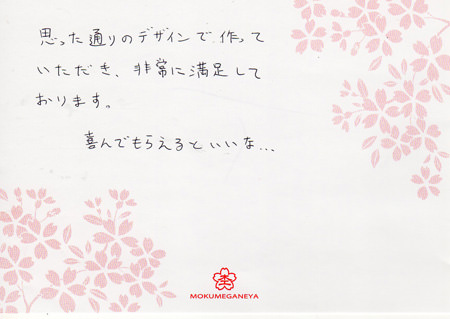 思った通りのデザインで作って
いただき、非常に満足して
おります。
喜んでもらえるといいな...
MOKUMEGANEYA